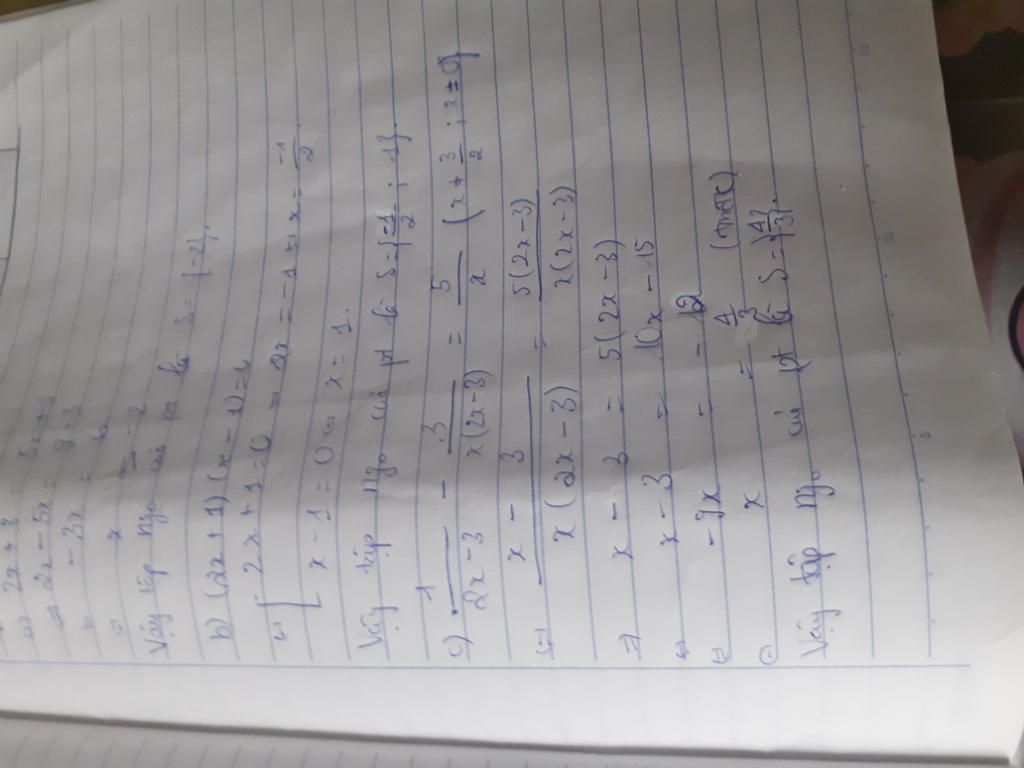 a) 2x + 3 = 5x + 9
⇔ 2x - 5x = 9 - 3
⇔ - 3x = 6
⇔ x = -2
Vậy tập ngo của pt là S = {-2}.
b) (2x + 1)(x - 1) = 0
⇔ [ 2x + 1 = 0 ⇔ 2x = -1 ⇔ x = -1/2
x - 1 = 0 ⇔ x = 1.
Vậy tập ngo của pt là S = {-1/2 ; 1}.
c) 1/(2x - 3) - 3/(x(2x - 3)) = 5/x (x ≠ 3/2 ; x ≠ 0)
⇔ (x - 3)/(x(2x - 3)) = 5(2x - 3)/(x(2x - 3))
⇒ x - 3 = 5(2x - 3)
⇔ x - 3 = 10x - 15
⇔ - 9x = - 12
⇔ x = 4/3 (tmđk)
Vậy tập ngo của pt là S = {4/3}.